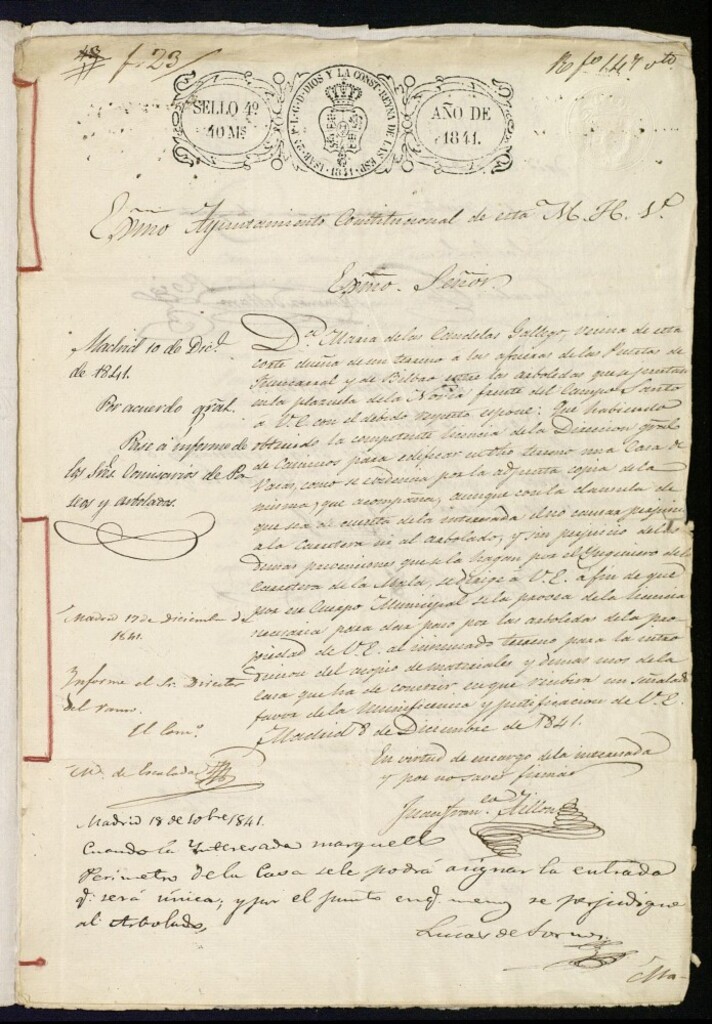 f. 23
Rº fº 147 vto
SELLO 4º
40 Ms
ISAB. 2ª P. L. G. D. DIOS Y LA CONST. REYNA DE LAS ESP. 1841
AÑO DE
1841.
Exmo Ayuntamiento Constitucional de esta M. H. Vª
Exmo. Señor.
Madrid 10 de Dice
de 1841.
Por acuerdo gral.
Pase á informe de
los Sres Comisarios de Pa
seos y arbolados.
Dª Maria de las Candelas Gallego, vecina de esta
corte dueña de un terreno a las afueras de las Puertas de
Fuencarral y de Bilbao entre las arboledas que
en la plazuela de la Noria frente del Campo Santo
a V.E. con el debido respeto espone: Que habiendo
obtenido la competente licencia de la Direccion gral
de Caminos para edificar en dho terreno una Casa de
Vacas, como se evidencia por la adjunta copia de la
misma, que acompaña, aunque con la clausula de
que sea de cuenta de la interesada el no causar perjuicio
a la Carretera ni al arbolado, y sin perjuicio de las
demas prevenciones que se la hagan por el Yngeniero de la
Carretera de la Mala, se dirije á V.E. a fin de que
por su Cuerpo Municipal se la provea de la licencia
necesaria para dar paso por las arboledas de la pro
piedad de V.E. al insinuado terreno para la intro
duccion del acopio de materiales y demas usos de la
casa que ha de construir, en que recibirá un señalado
favor de la munificencia y justificacion de V.E.
Madrid 8 de Diciembre de 1841.
Madrid 17 de diciembre de
1841.
Informe el Sr. Director
del ramo.
El Comº.
M. de Escalada
En virtud de encargo de la interesada
y por no saver firmar
Juan Franco Millon
Madrid 18 de 10bre 1841.
Cuando la Ynteresada marque el
Perimetro de la Casa se le podrá asignar la entrada
q.e será única; y por el punto en q.e menos se perjudique
al Arbolado.
Lucas de Tornos
Ma-